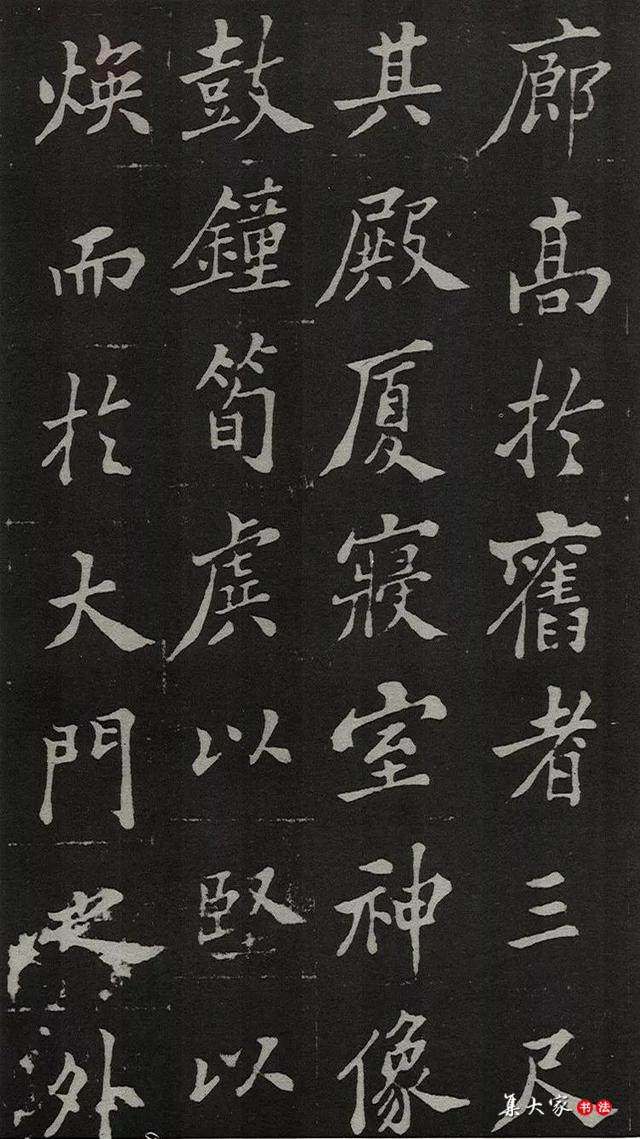 廊高於舊者三尺
其殿厦寢室神像
鼓鐘筍虡以堅以
煥而於大門之外
集大家书法